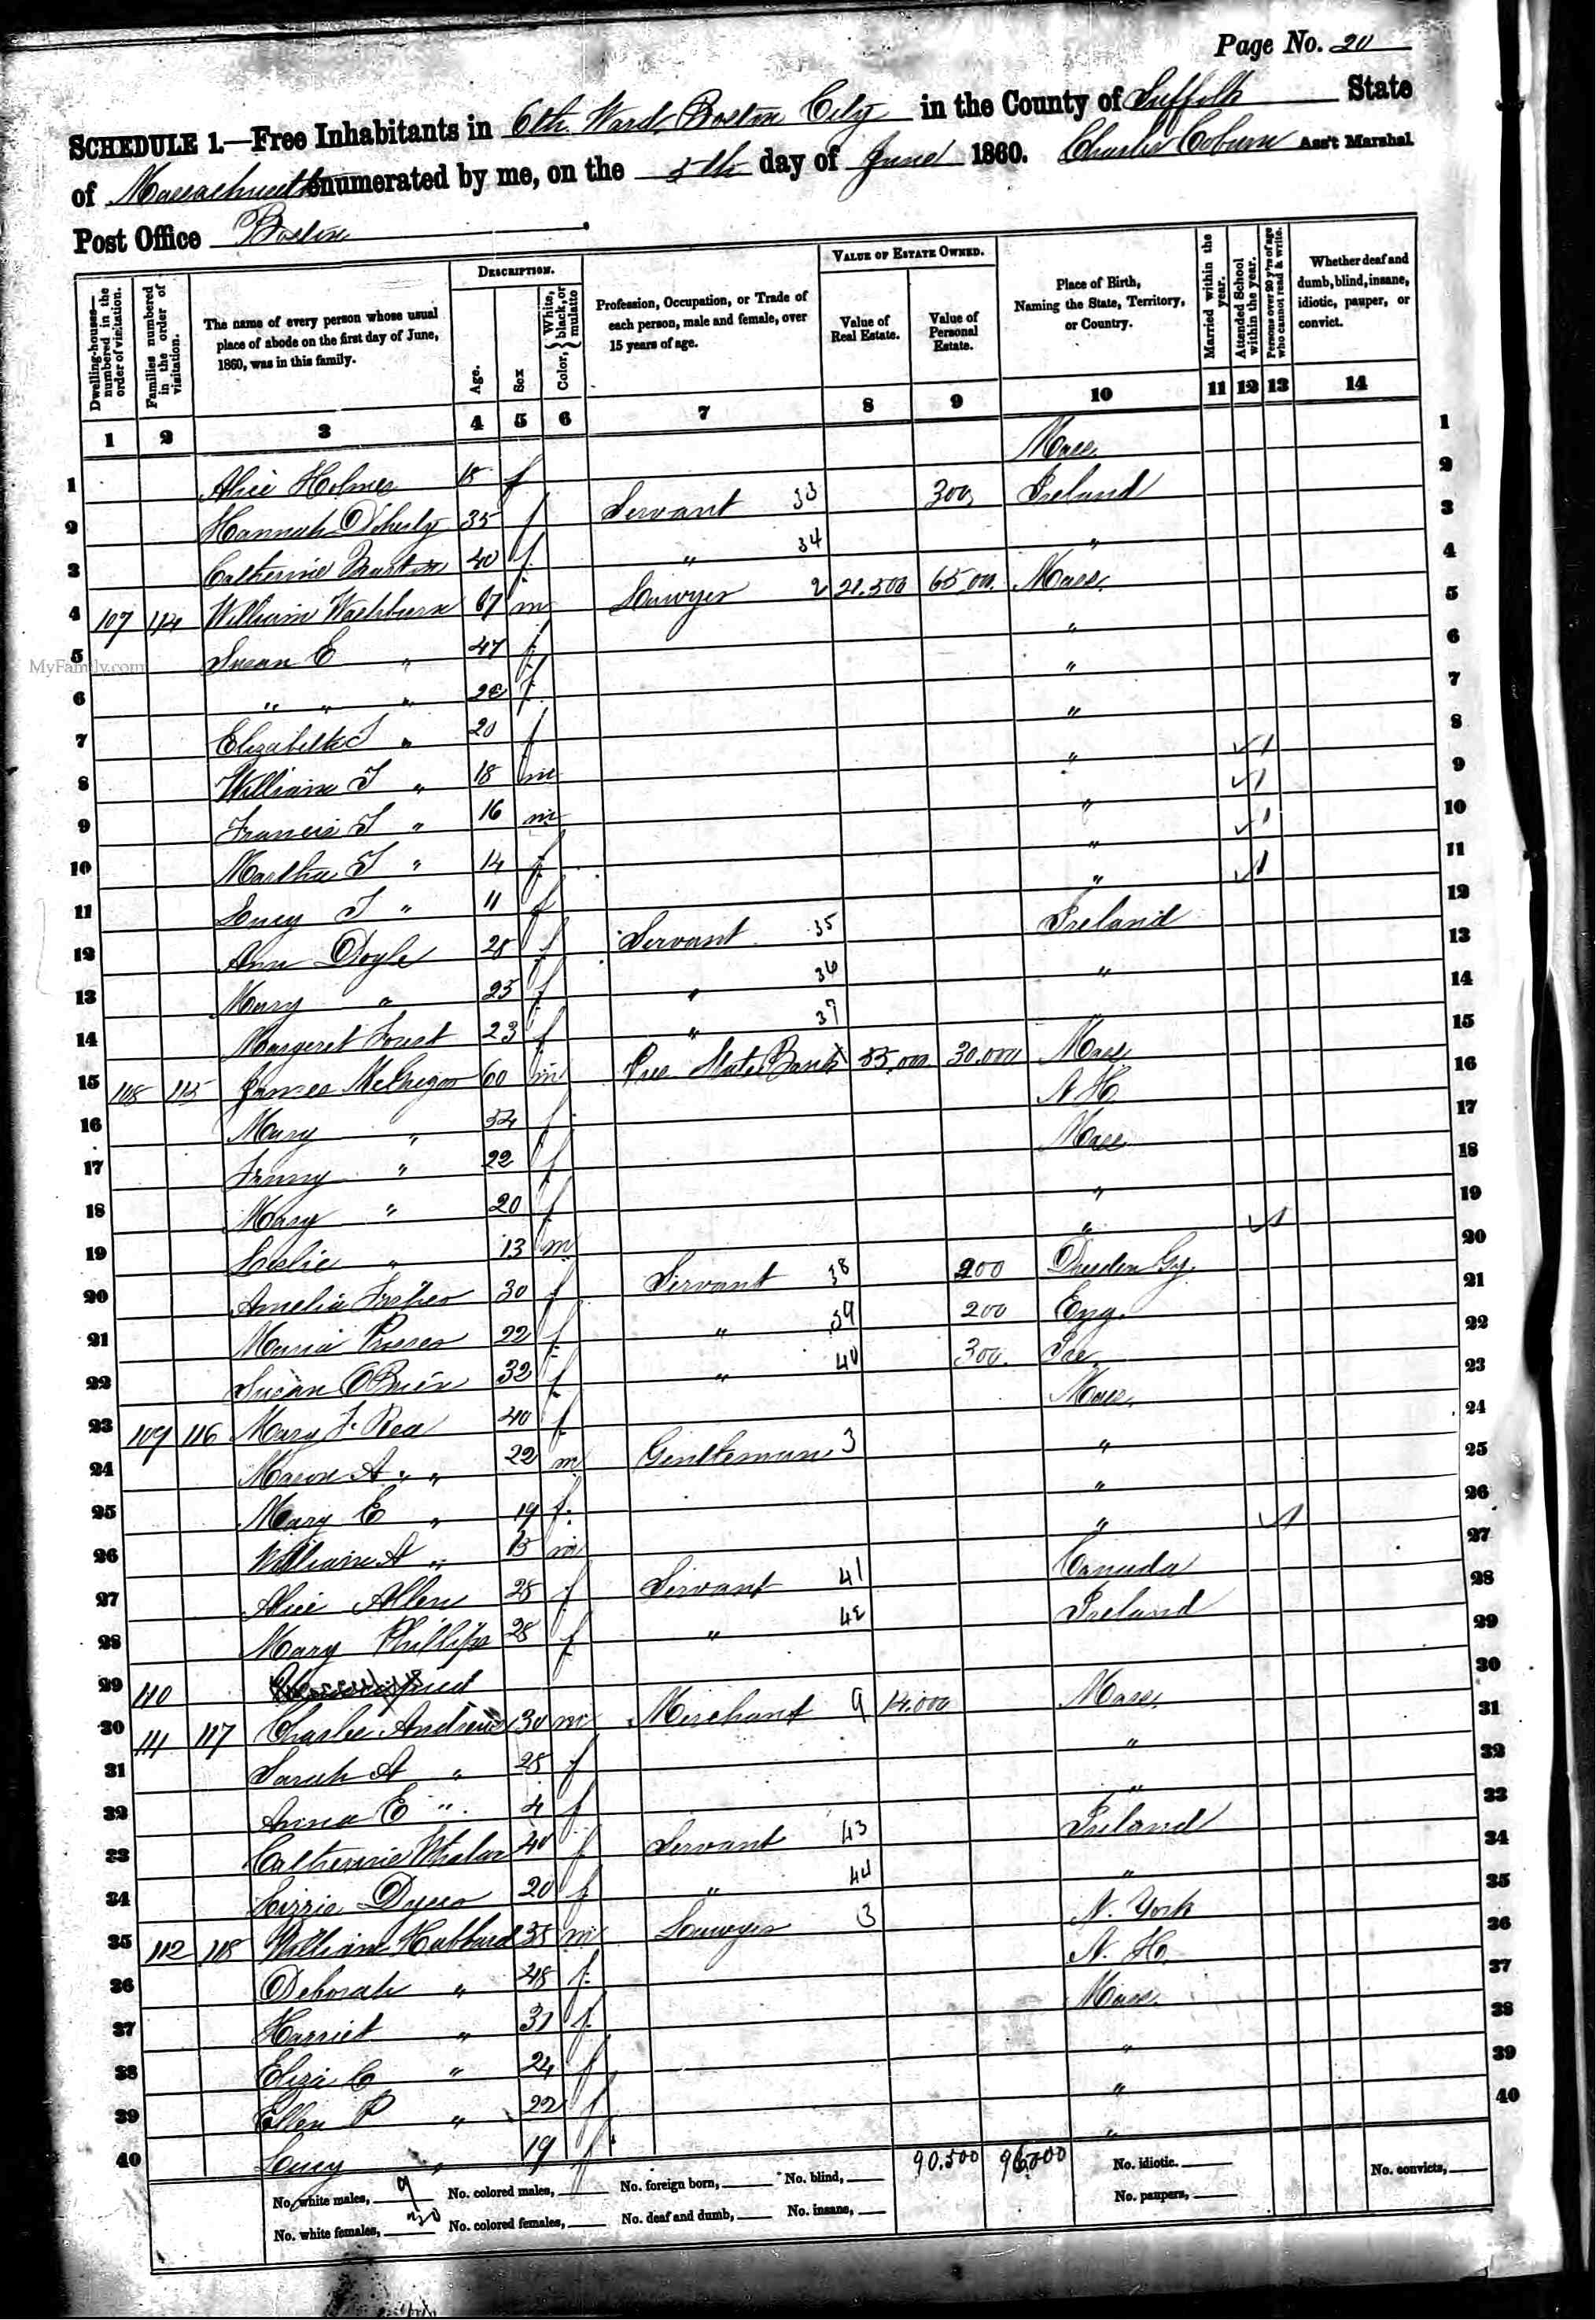 Page No. 20
SCHEDULE 1.—Free Inhabitants in 6th Ward, Boston City in the County of Suffolk State
of Massachusetts enumerated by me, on the 5th day of June 1860. Charles Coburn Ass't Marshal.
Post Office Boston
Dwelling-houses—numbered in the order of visitation.
Families numbered in the order of visitation.
The name of every person whose usual place of abode on the first day of June, 1860, was in this family.
DESCRIPTION.
Age.
Sex
Color, { White, black, or mulatto
Profession, Occupation, or Trade of each person, male and female, over 15 years of age.
VALUE OF ESTATE OWNED.
Value of Real Estate.
Value of Personal Estate.
Place of Birth, Naming the State, Territory, or Country.
Married within the year.
Attended School within the year.
Persons over 20 y'rs of age who cannot read & write.
Whether deaf and dumb, blind, insane, idiotic, pauper, or convict.
1 2 3 4 5 6 7 8 9 10 11 12 13 14
1 Alice Holmes 18 f Mass. 1
2 Hannah Doherty 35 f Servant 33 300 Ireland 2
3 Catherine 40 f " 34 " 3
4 107 114 William Washburn 67 m Lawyer 2 21.500 65,00. Mass. 4
5 Susan E " 47 f " 5
6 " " " f " 6
7 Elizabeth " 20 f " 7
8 William T " 18 m " 8
9 Francis T " 16 m " 9
10 Martha T " 14 f " 10
11 Lucy T " 11 f " 11
12 Ann Doyle 28 f Servant 35 Ireland 12
13 Mary " 25 f " 36 " 13
14 Margeret 23 f " 37 " 14
15 108 115 James McGregor 60 m Pres State Bank 55,000 30.000 Mass 15
16 Mary " f N H. 16
17 Fanny " 22 f Mass 17
18 Mary " 20 f " 18
19 Leslie " 13 m " 19
20 Amelia 30 f Servant 38 200 Dresden Gy. 20
21 Maria 22 f " 39 200 Eng. 21
22 Susan OBrien 32 f " 40 300. Ire. 22
23 109 116 Mary F. Rea 40 f Mass. 23
24 A " " 22 m Gentleman 3 " 24
25 Mary E " 19 f. " 25
26 William A " 15 m " 26
27 Alice Allen 28 f Servant 41 Canada 27
28 Mary Phillips 28 f " 42 Ireland 28
29 110 29
30 111 117 Charles Andrews 30 m Merchant 9 14.000 Mass. 30
31 Sarah A " 28 f " 31
32 Anna E " 4 f " 32
33 Catherine Whalen 40 f Servant 43 Ireland 33
34 Lizzie 20 f " 44 " 34
35 112 118 William Hubbard 38 m Lawyer 3 N. York 35
36 Deborah " 48 f. N. H. 36
37 Harriet " 31 f. Mass. 37
38 Eliza C " 24 f " 38
39 Ellen P " 22 f " 39
40 Lucy " 19 f " 40
No. white males, 9 No. colored males, No. foreign born, No. blind, 90.500 96000 No. idiotic. No. convicts,
No. white females, 30 No. colored females, No. deaf and dumb, No. insane, No. paupers,
MyFamily.com